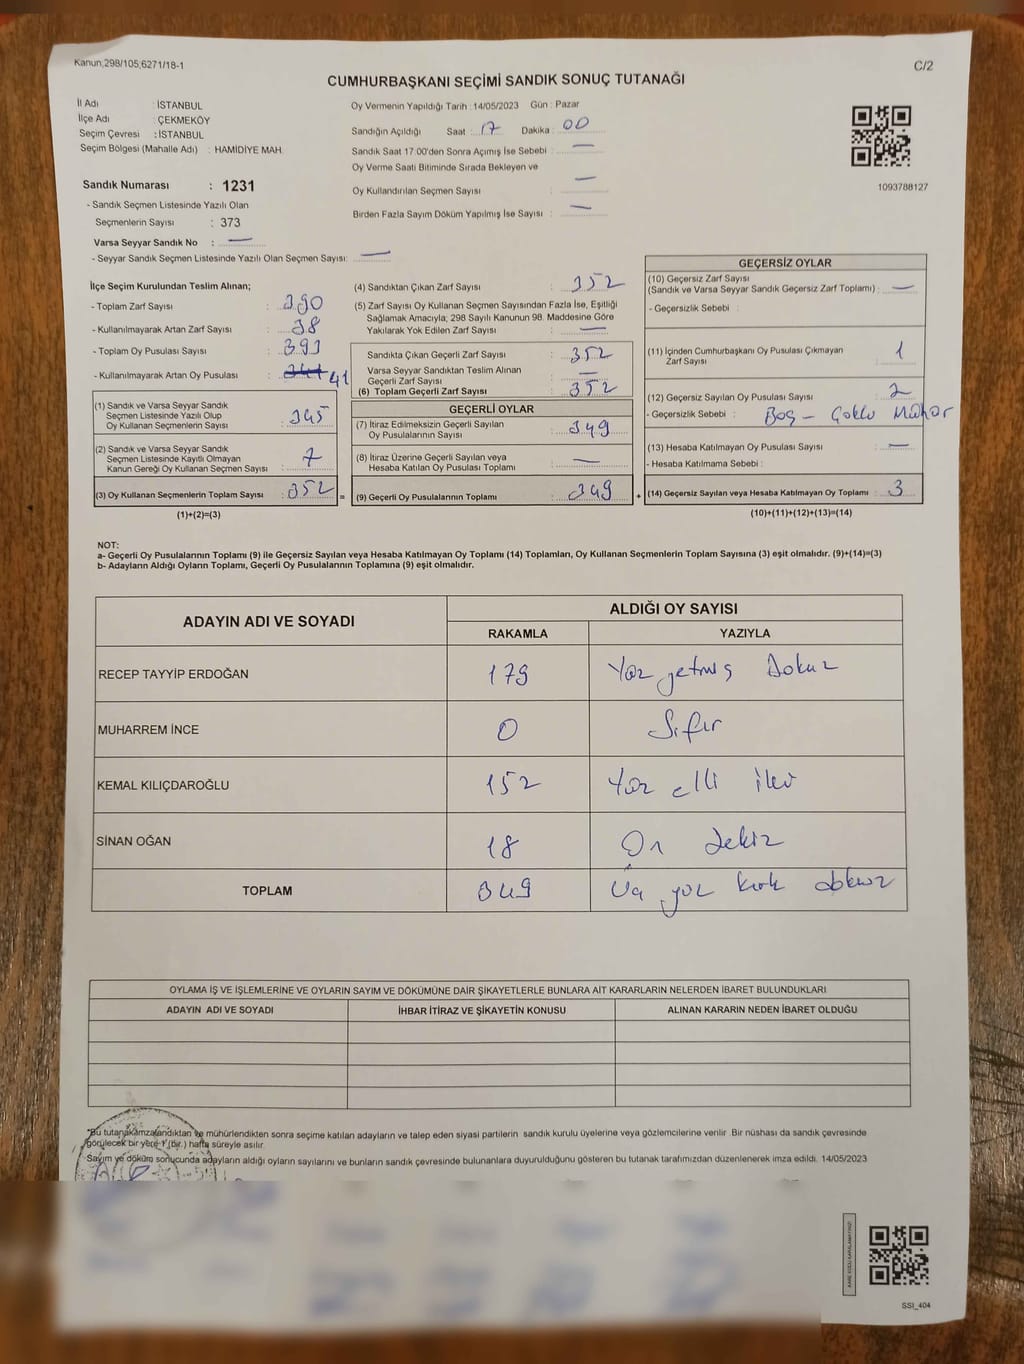 Kanun,298/105;6271/18-1
C/2
CUMHURBAŞKANI SEÇİMİ SANDIK SONUÇ TUTANAĞI
İl Adı : İSTANBUL
İlçe Adı : ÇEKMEKÖY
Seçim Çevresi : İSTANBUL
Seçim Bölgesi (Mahalle Adı) : HAMİDİYE MAH.
Oy Vermenin Yapıldığı Tarih :14/05/2023 Gün : Pazar
Sandığın Açıldığı Saat : 17 Dakika : 00
Sandık Saat 17:00'den Sonra Açımış İse Sebebi : —
Oy Verme Saati Bitiminde Sırada Bekleyen ve
Oy Kullandırılan Seçmen Sayısı : —
Birden Fazla Sayım Döküm Yapılmış İse Sayısı : —
1093788127
Sandık Numarası : 1231
- Sandık Seçmen Listesinde Yazılı Olan
Seçmenlerin Sayısı : 373
Varsa Seyyar Sandık No : —
- Seyyar Sandık Seçmen Listesinde Yazılı Olan Seçmen Sayısı: —
İlçe Seçim Kurulundan Teslim Alınan;
- Toplam Zarf Sayısı : 390
- Kullanılmayarak Artan Zarf Sayısı : 38
- Toplam Oy Pusulası Sayısı : 393
- Kullanılmayarak Artan Oy Pusulası : 41
(1) Sandık ve Varsa Seyyar Sandık
Seçmen Listesinde Yazılı Olup
Oy Kullanan Seçmenlerin Sayısı : 345
(2) Sandık ve Varsa Seyyar Sandık
Seçmen Listesinde Kayıtlı Olmayan
Kanun Gereği Oy Kullanan Seçmen Sayısı : 7
(3) Oy Kullanan Seçmenlerin Toplam Sayısı : 352 =
(1)+(2)=(3)
(4) Sandıktan Çıkan Zarf Sayısı : 352
(5) Zarf Sayısı Oy Kullanan Seçmen Sayısından Fazla İse, Eşitliği
Sağlamak Amacıyla; 298 Sayılı Kanunun 98. Maddesine Göre
Yakılarak Yok Edilen Zarf Sayısı : —
Sandıkta Çıkan Geçerli Zarf Sayısı : 352
Varsa Seyyar Sandıktan Teslim Alınan
Geçerli Zarf Sayısı : —
(6) Toplam Geçerli Zarf Sayısı : 352
GEÇERLİ OYLAR
(7) İtiraz Edilmeksizin Geçerli Sayılan
Oy Pusulalarının Sayısı : 349
(8) İtiraz Üzerine Geçerli Sayılan veya
Hesaba Katılan Oy Pusulası Toplamı : —
(9) Geçerli Oy Pusulalarının Toplamı : 349 +
GEÇERSİZ OYLAR
(10) Geçersiz Zarf Sayısı
(Sandık ve Varsa Seyyar Sandık Geçersiz Zarf Toplamı) : —
- Geçersizlik Sebebi :
(11) İçinden Cumhurbaşkanı Oy Pusulası Çıkmayan
Zarf Sayısı : 1
(12) Geçersiz Sayılan Oy Pusulası Sayısı : 2
- Geçersizlik Sebebi : Boş - Çoklu Mühür
(13) Hesaba Katılmayan Oy Pusulası Sayısı : —
- Hesaba Katılmama Sebebi :
(14) Geçersiz Sayılan veya Hesaba Katılmayan Oy Toplamı : 3
(10)+(11)+(12)+(13)=(14)
NOT:
a- Geçerli Oy Pusulalarının Toplamı (9) ile Geçersiz Sayılan veya Hesaba Katılmayan Oy Toplamı (14) Toplamları, Oy Kullanan Seçmenlerin Toplam Sayısına (3) eşit olmalıdır. (9)+(14)=(3)
b- Adayların Aldığı Oyların Toplamı, Geçerli Oy Pusulalarının Toplamına (9) eşit olmalıdır.
ADAYIN ADI VE SOYADI
ALDIĞI OY SAYISI
RAKAMLA YAZIYLA
RECEP TAYYİP ERDOĞAN 179 Yüz yetmiş Dokuz
MUHARREM İNCE 0 Sıfır
KEMAL KILIÇDAROĞLU 152 Yüz elli iki
SİNAN OĞAN 18 On Sekiz
TOPLAM 349 Üç yüz kırk dokuz
OYLAMA İŞ VE İŞLEMLERİNE VE OYLARIN SAYIM VE DÖKÜMÜNE DAİR ŞİKAYETLERLE BUNLARA AİT KARARLARIN NELERDEN İBARET BULUNDUKLARI
ADAYIN ADI VE SOYADI İHBAR İTİRAZ VE ŞİKAYETİN KONUSU ALINAN KARARIN NEDEN İBARET OLDUĞU
"Bu tutanak imzalandıktan ve mühürlendikten sonra seçime katılan adayların ve talep eden siyasi partilerin sandık kurulu üyelerine veya gözlemcilerine verilir. Bir nüshası da sandık çevresinde
görülecek bir yere 1 (bir.) hafta süreyle asılır.
Sayım ve döküm sonucunda adayların aldığı oyların sayılarını ve bunların sandık çevresinde bulunanlara duyurulduğunu gösteren bu tutanak tarafımızdan düzenlenerek imza edildi. 14/05/2023
SSI_404